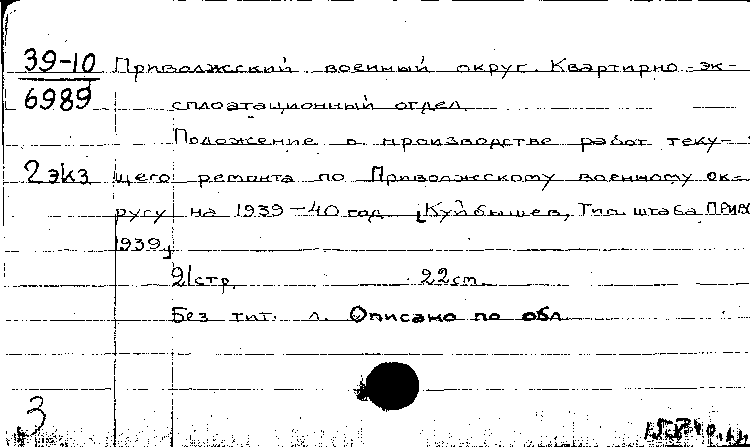 39-10 Приволжский военный округ. Квартирно-эк-
6989 сплоатационный отдел.
Положение о производстве работ теку-
2 экз щего ремонта по Приволжскому военному ок-
ругу на 1939-40 год. [Куйбышев, Тип. штаба ПРИВО
1939]
21 стр. 22 см.
Без тит. л. Описано по обл.
3